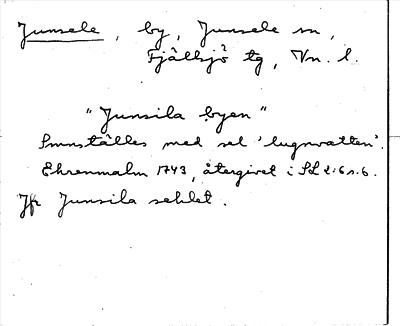 Junsele, by, Junsele sn,
Fjällsjö tg, Vn. l.
"Junsila byen"
Smnställes med sel 'lugnvatten'.
Ehrenmalm 1743, återgivet i SL 2:6 s. 6.
Jfr Junsila seklet.